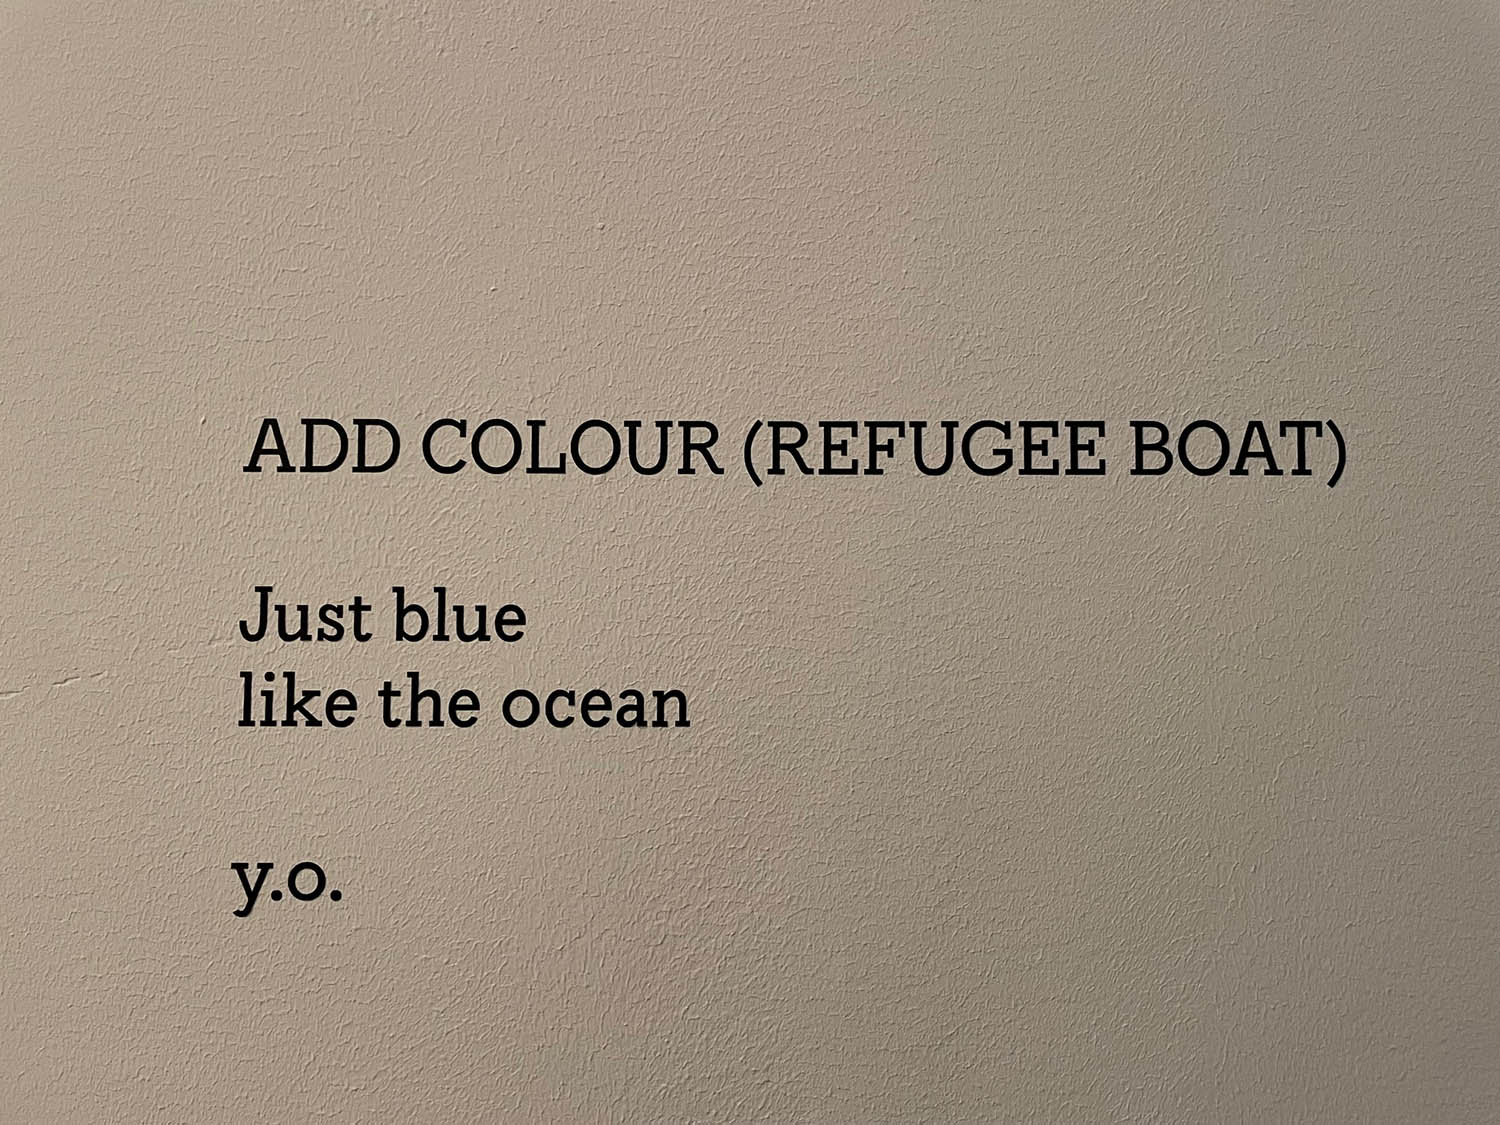 ADD COLOUR (REFUGEE BOAT)
Just blue
like the ocean
y.o.